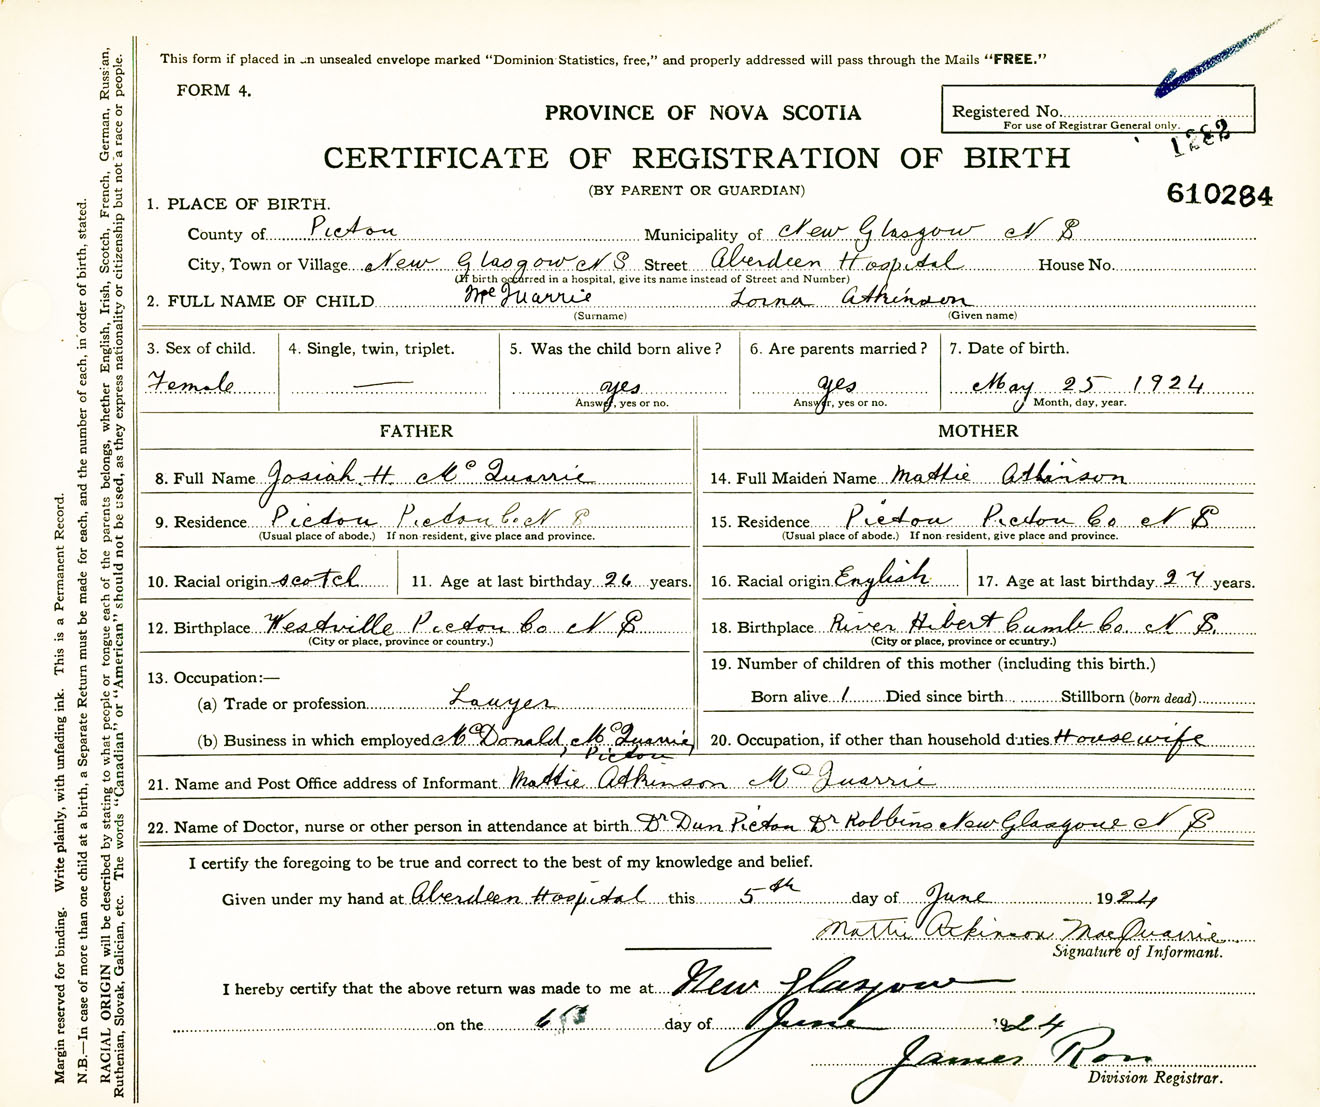 This form if placed in an unsealed envelope marked "Dominion Statistics, free," and properly addressed will pass through the Mails "FREE."
FORM 4.
PROVINCE OF NOVA SCOTIA
Registered No.
For use of Registrar General only.
1282
CERTIFICATE OF REGISTRATION OF BIRTH
(BY PARENT OR GUARDIAN)
610284
1. PLACE OF BIRTH.
County of Pictou Municipality of New Glasgow N S
City, Town or Village New Glasgow N S Street Aberdeen Hospital House No.
(If birth occurred in a hospital, give its name instead of Street and Number)
2. FULL NAME OF CHILD McQuarrie Lorna Atkinson
(Surname) (Given name)
3. Sex of child. 4. Single, twin, triplet. 5. Was the child born alive? 6. Are parents married? 7. Date of birth.
Female — yes yes May 25 1924
Answer, yes or no. Answer, yes or no. Month, day, year.
FATHER MOTHER
8. Full Name Josiah H. McQuarrie 14. Full Maiden Name Mattie Atkinson
9. Residence Pictou Pictou Co. N S 15. Residence Pictou Pictou Co N S
(Usual place of abode.) If non-resident, give place and province. (Usual place of abode.) If non-resident, give place and province.
10. Racial origin scotch 11. Age at last birthday 26 years. 16. Racial origin English 17. Age at last birthday 27 years.
12. Birthplace Westville Pictou Co N S 18. Birthplace River Hibert Cumb Co. N S.
(City or place, province or country.) (City or place, province or country.)
13. Occupation:— 19. Number of children of this mother (including this birth.)
(a) Trade or profession Lawyer Born alive 1 Died since birth Stillborn (born dead)
(b) Business in which employed McDonald, McQuarrie, 20. Occupation, if other than household duties Housewife
Pictou
21. Name and Post Office address of Informant Mattie Atkinson McQuarrie
22. Name of Doctor, nurse or other person in attendance at birth Dr Dun Pictou Dr Robbins New Glasgow N S
I certify the foregoing to be true and correct to the best of my knowledge and belief.
Given under my hand at Aberdeen Hospital this 5th day of June 1924
Mattie Atkinson MacQuarrie
Signature of Informant.
I hereby certify that the above return was made to me at New Glasgow
on the 6 day of June 1924
James Ron
Division Registrar.
Margin reserved for binding. Write plainly, with unfading ink. This is a Permanent Record.
N.B.—In case of more than one child at a birth, a Separate Return must be made for each, and the number of each, in order of birth, stated.
RACIAL ORIGIN will be described by stating to what people or tongue each of the parents belongs, whether English, Irish, Scotch, French, German, Russian,
Ruthenian, Slovak, Galician, etc. The words "Canadian" or "American" should not be used, as they express nationality or citizenship but not a race or people.